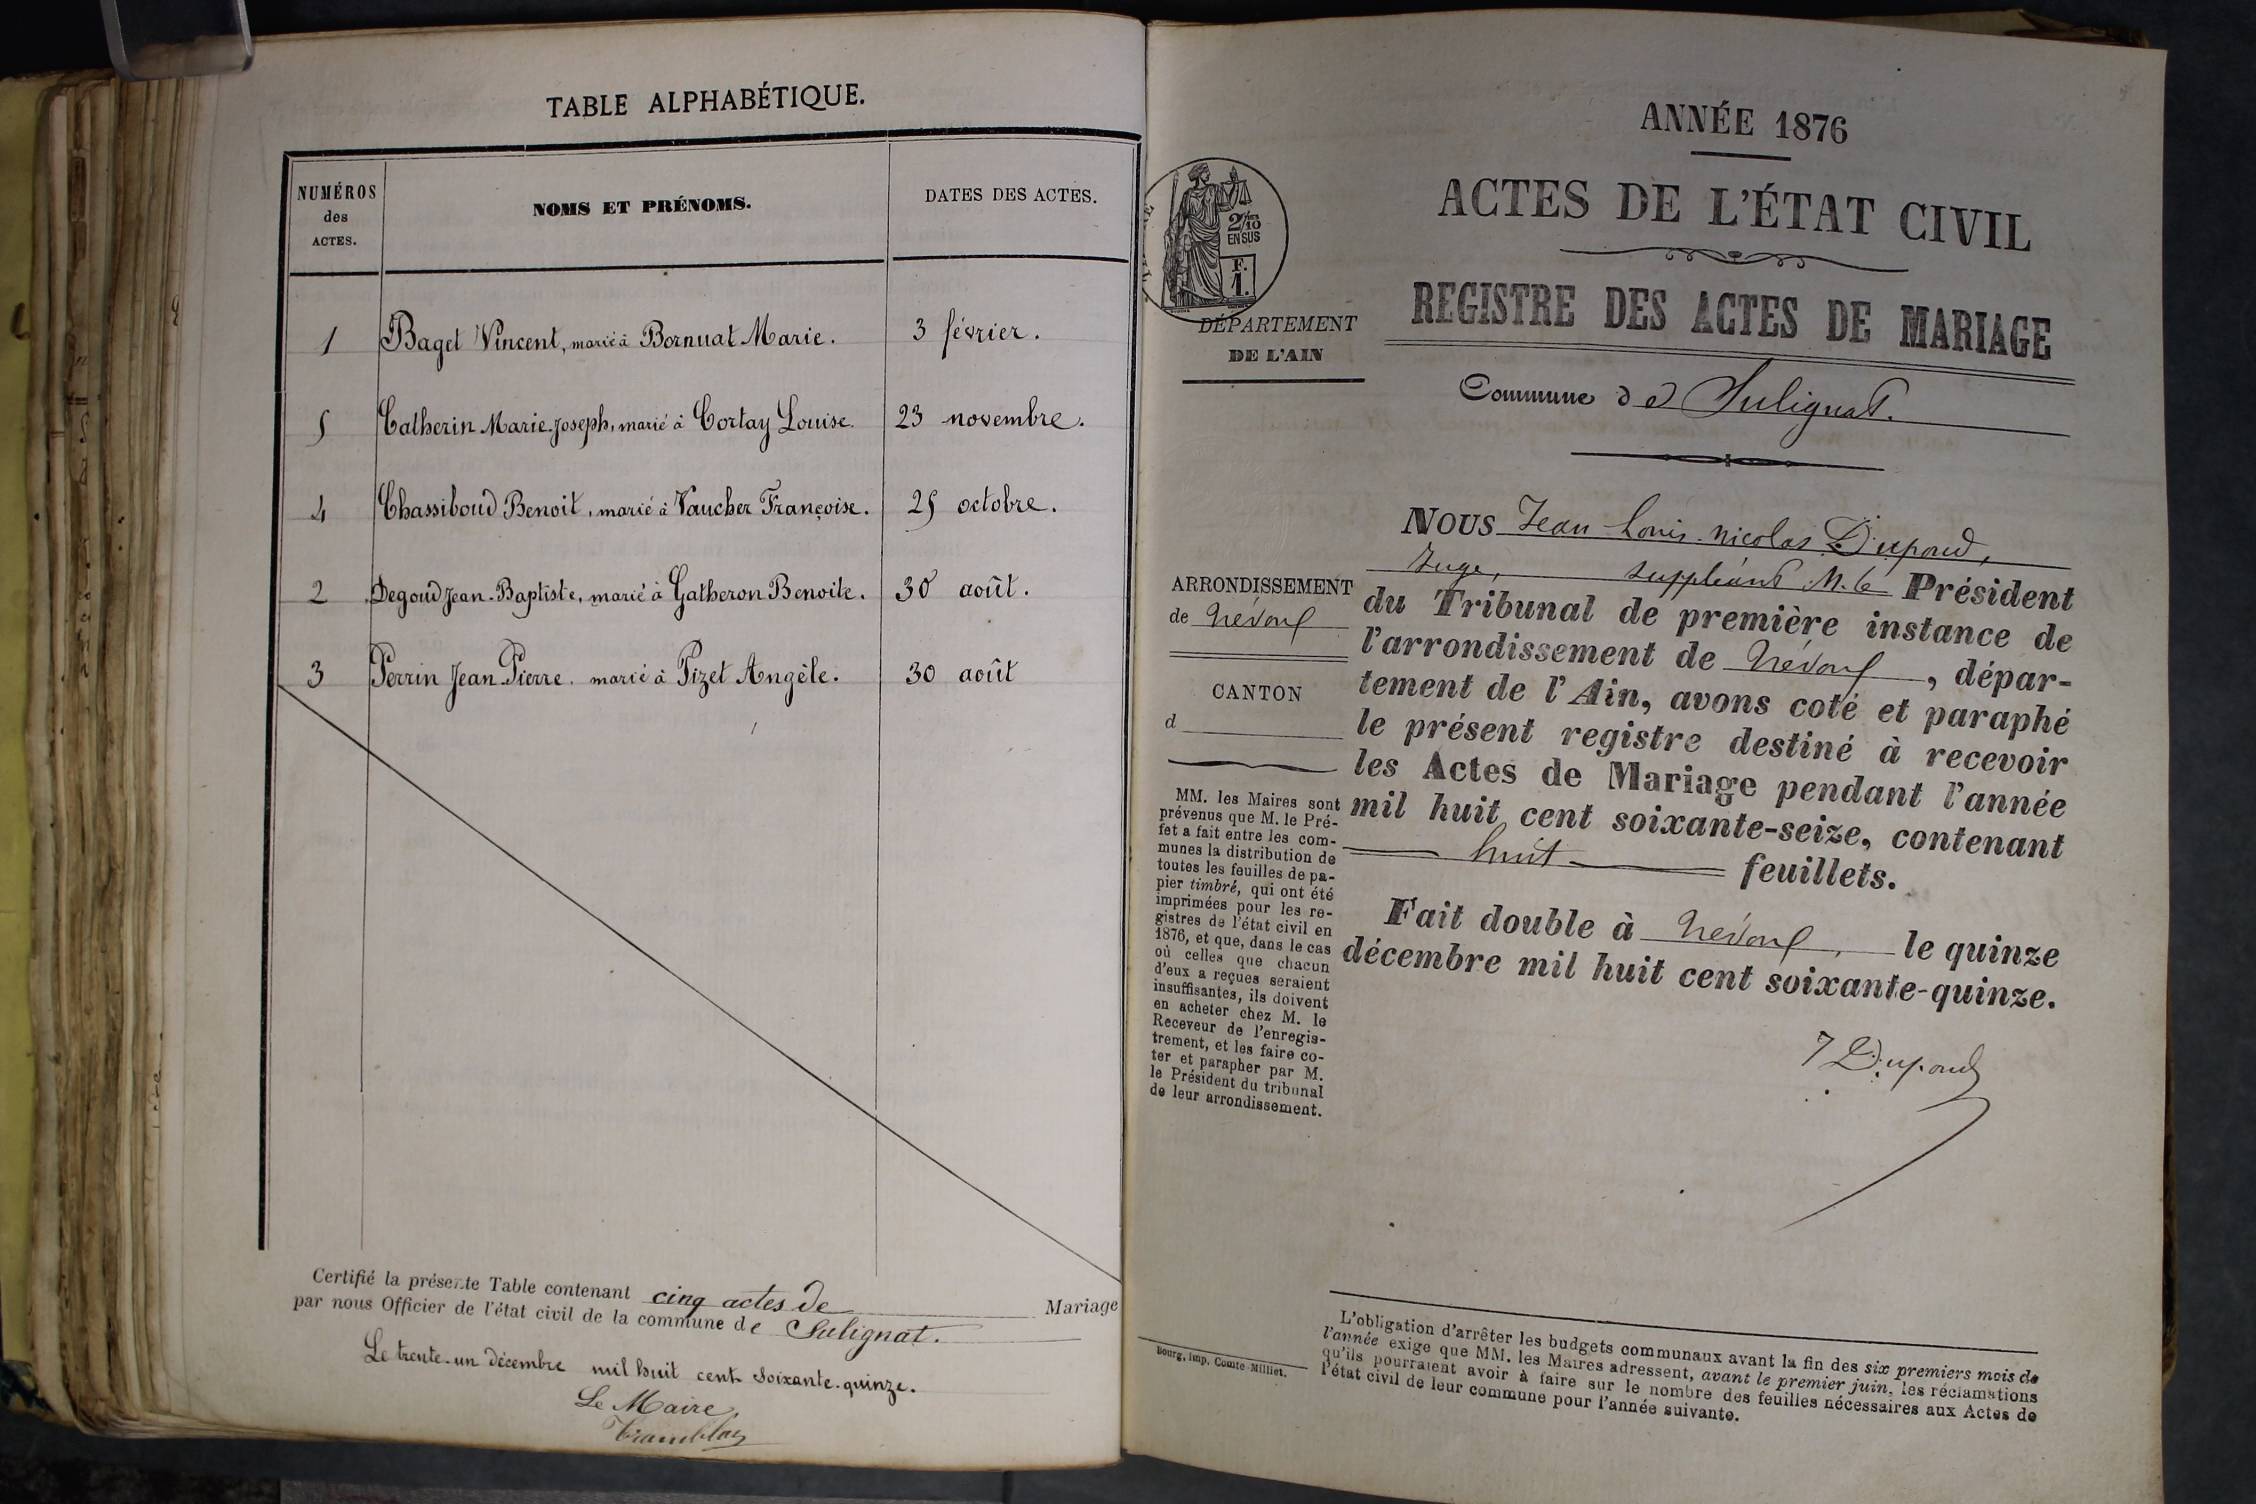 TABLE ALPHABÉTIQUE.
NUMÉROS
des
ACTES.
NOMS ET PRÉNOMS.
DATES DES ACTES.
1 Baget Vincent, marié à Bornuat Marie. 3 février.
5 Catherin Marie-Joseph, marié à Cortay Louise. 23 novembre.
4 Chassiboud Benoit, marié à Vaucher Françoise. 25 octobre.
2 Degoud Jean-Baptiste, marié à Gatheron Benoite. 30 août.
3 Perrin Jean Pierre. marié à Pizet Angèle. 30 août
Certifié la présente Table contenant cinq actes de Mariage
par nous Officier de l'état civil de la commune de Sulignat.
Le trente-un décembre mil huit cent soixante-quinze.
Le Maire,
Tramblay
ANNÉE 1876
ACTES DE L'ÉTAT CIVIL
REGISTRE DES ACTES DE MARIAGE
Commune de Sulignat.
2/10
EN SUS
F.
1.
DÉPARTEMENT
DE L'AIN
ARRONDISSEMENT
de Trévoux
CANTON
d
MM. les Maires sont
prévenus que M. le Pré-
fet a fait entre les com-
munes la distribution de
toutes les feuilles de pa-
pier timbré, qui ont été
imprimées pour les re-
gistres de l'état civil en
1876, et que, dans le cas
où celles que chacun
d'eux a reçues seraient
insuffisantes, ils doivent
en acheter chez M. le
Receveur de l'enregis-
trement, et les faire co-
ter et parapher par M.
le Président du tribunal
de leur arrondissement.
NOUS Jean-Louis-Nicolas Dupoud,
Juge, suppléant M. le Président
du Tribunal de première instance de
l'arrondissement de Trévoux, dépar-
tement de l'Ain, avons coté et paraphé
le présent registre destiné à recevoir
les Actes de Mariage pendant l'année
mil huit cent soixante-seize, contenant
huit feuillets.
Fait double à Trévoux, le quinze
décembre mil huit cent soixante-quinze.
Dupoud
L'obligation d'arrêter les budgets communaux avant la fin des six premiers mois de
l'année exige que MM. les Maires adressent, avant le premier juin, les réclamations
qu'ils pourraient avoir à faire sur le nombre des feuilles nécessaires aux Actes de
l'état civil de leur commune pour l'année suivante.
Bourg, imp. Comte-Milliet.